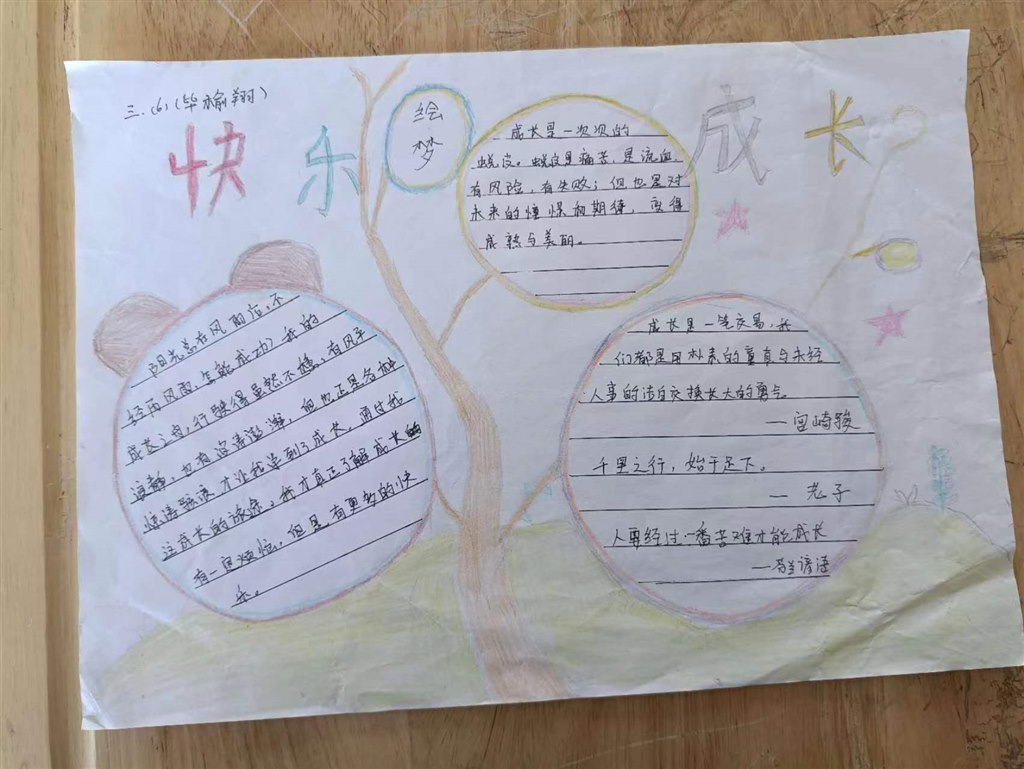 三.(6)(毕榆翔)
快乐
绘
梦
成长
成长是一次次的
蜕皮。蜕皮是痛苦,是流血,
有风险,有失败;但也是对
未来的憧憬和期待,变得
成熟与美丽。
阳光总在风雨后,不
经历风雨,怎能成功?我的
成长之舟,行驶得虽然不稳,有风平
浪静,也有波涛澎湃,但也正是各种
惊涛骇浪才让我学到了成长。通过我
这成长的旅途,我才真正了解成长的
有一定烦恼,但是有更多的快
乐。
成长是一笔交易,我
们都是用朴素的童真与未经
人事的洁白交换长大的勇气。
—宫崎骏
千里之行,始于足下。
—老子
人要经过一番苦难才能成长
—谚语